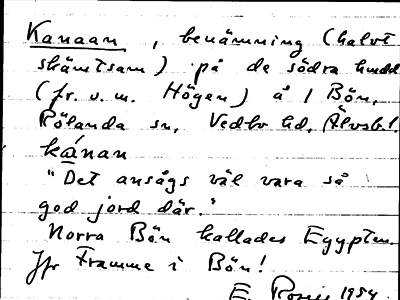 Kanaan, benämning (halvt
skämtsam) på de södra hmdel
(fr. o. m. Högen) å / Bön,
Rölanda sn, Vedbo hd, Älvsb. l.
kánan
"Det ansågs väl vara så
god jord där."
Norra Bön kallades Egypten.
Jfr Framme i Bön!
E. 1954